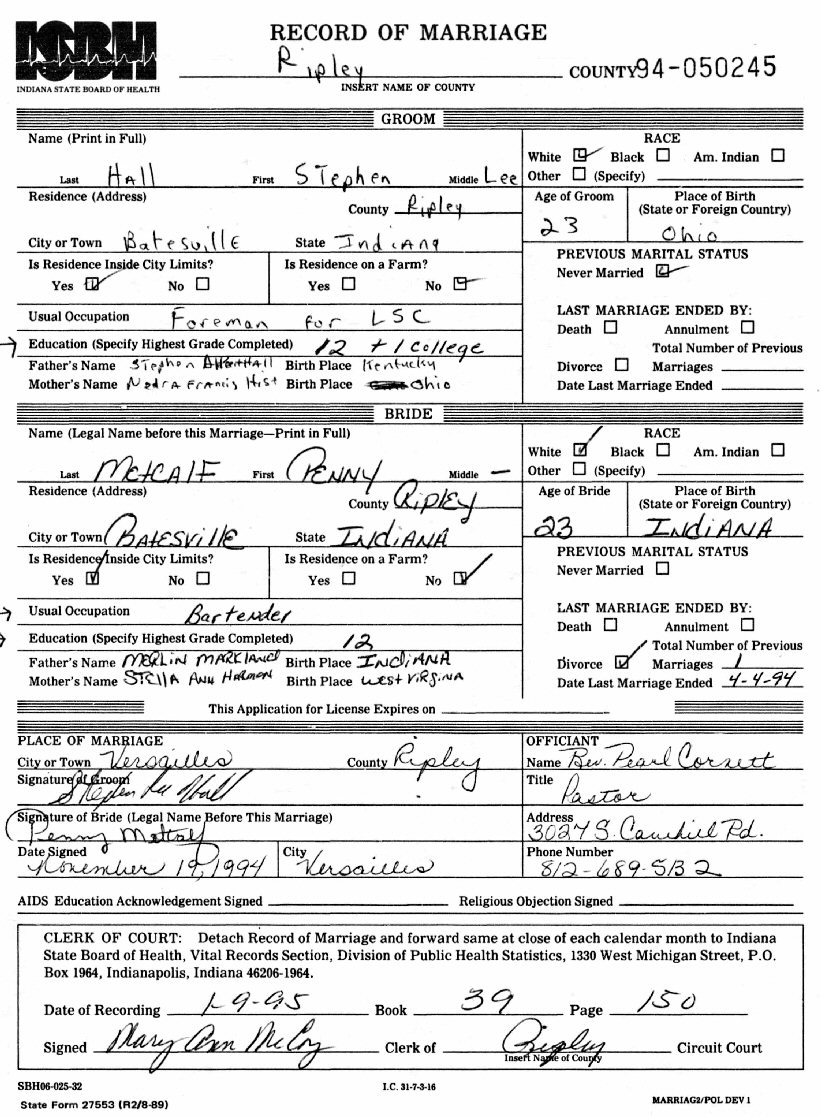 RECORD OF MARRIAGE
ISBH
INDIANA STATE BOARD OF HEALTH
Ripley COUNTY 94-050245
INSERT NAME OF COUNTY
GROOM
Name (Print in Full)
Last Hall First Stephen Middle Lee
RACE
White ☑ Black ☐ Am. Indian ☐
Other ☐ (Specify)
Residence (Address)
County Ripley
City or Town Batesville State Indiana
Age of Groom 23
Place of Birth
(State or Foreign Country)
Ohio
Is Residence Inside City Limits?
Yes ☑ No ☐
Is Residence on a Farm?
Yes ☐ No ☑
PREVIOUS MARITAL STATUS
Never Married ☑
Usual Occupation Foreman for LSC
Education (Specify Highest Grade Completed) 12 + 1 college
Father's Name Stephen Hall Birth Place Kentucky
Mother's Name Nedra Francis Hist Birth Place Ohio
LAST MARRIAGE ENDED BY:
Death ☐ Annulment ☐
Total Number of Previous
Divorce ☐ Marriages
Date Last Marriage Ended
BRIDE
Name (Legal Name before this Marriage—Print in Full)
Last Metcalf First Penny Middle —
RACE
White ☑ Black ☐ Am. Indian ☐
Other ☐ (Specify)
Residence (Address)
County Ripley
City or Town Batesville State Indiana
Age of Bride 23
Place of Birth
(State or Foreign Country)
Indiana
Is Residence Inside City Limits?
Yes ☑ No ☐
Is Residence on a Farm?
Yes ☐ No ☑
PREVIOUS MARITAL STATUS
Never Married ☐
Usual Occupation Bartender
Education (Specify Highest Grade Completed) 12
Father's Name Merlin Markland Birth Place Indiana
Mother's Name Stella Ann Harmon Birth Place West Virgina
LAST MARRIAGE ENDED BY:
Death ☐ Annulment ☐
Total Number of Previous
Divorce ☑ Marriages 1
Date Last Marriage Ended 4-4-94
This Application for License Expires on
PLACE OF MARRIAGE
City or Town Versailles County Ripley
OFFICIANT
Name Rev. Pearl Cornett
Signature of Groom
Stephen Lee Hall
Title
Pastor
Signature of Bride (Legal Name Before This Marriage)
Penny Metcalf
Address
3027 S. Cavehill Rd.
Date Signed
November 19, 1994
City
Versailles
Phone Number
812-689-5132
AIDS Education Acknowledgement Signed Religious Objection Signed
CLERK OF COURT: Detach Record of Marriage and forward same at close of each calendar month to Indiana
State Board of Health, Vital Records Section, Division of Public Health Statistics, 1330 West Michigan Street, P.O.
Box 1964, Indianapolis, Indiana 46206-1964.
Date of Recording 1-9-95 Book 39 Page 150
Signed Mary Ann McCoy Clerk of Ripley Circuit Court
Insert Name of County
SBH06-025-32 I.C. 31-7-3-16
State Form 27553 (R2/8-89) MARRIAG2/POL DEV 1